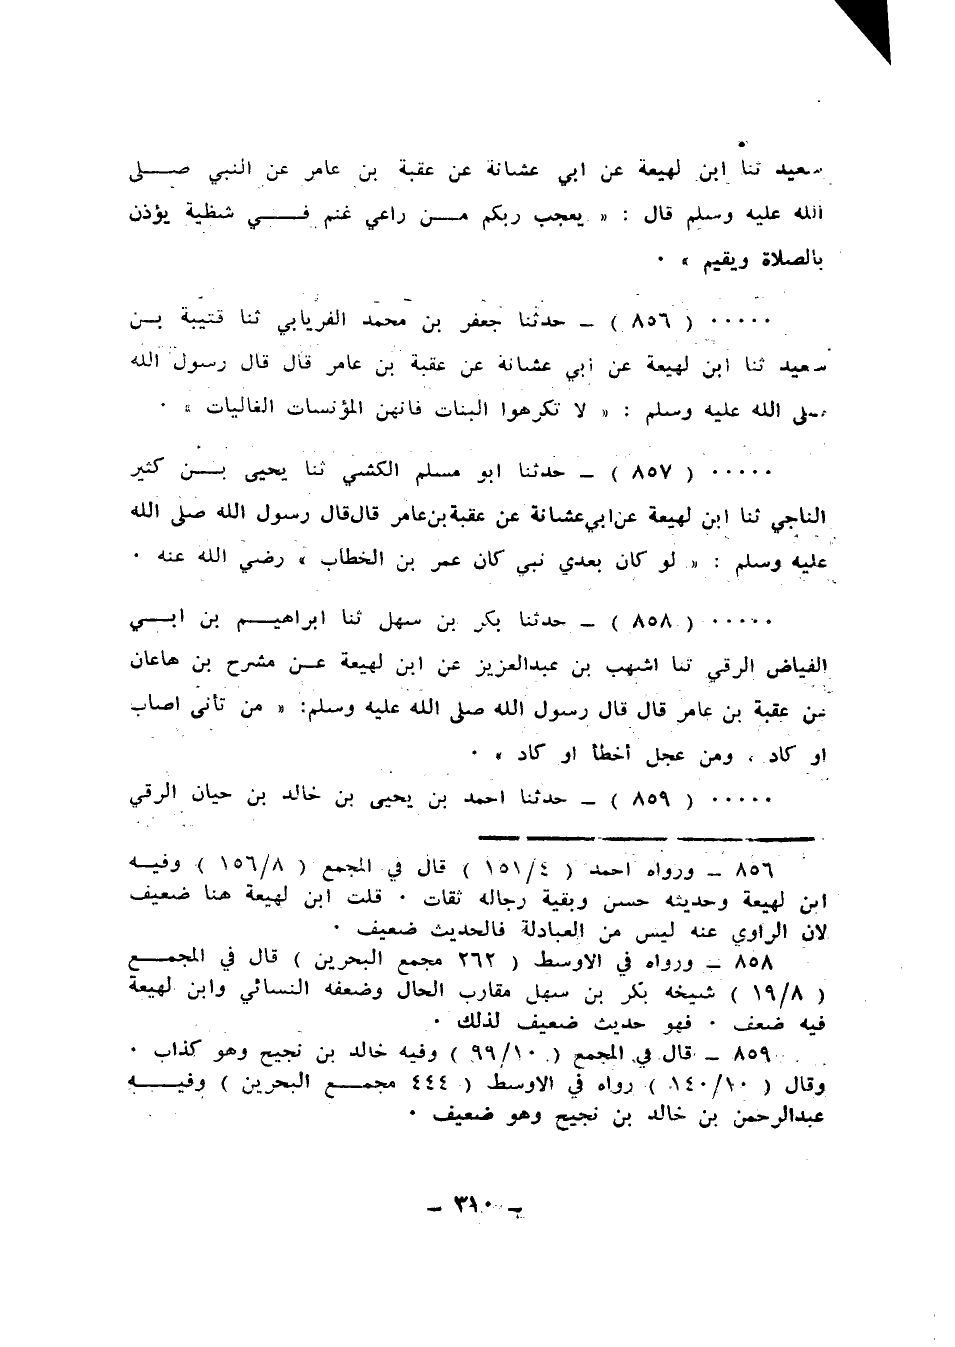 سعيد ثنا ابن لهيعة عن ابي عشانة عن عقبة بن عامر عن النبي صلى
الله عليه وسلم قال : « يعجب ربكم من راعي غنم في شظية يؤذن
بالصلاة ويقيم » ٠
٠٠٠٠٠ ( ٨٥٦ ) ــ حدثنا جعفر بن محمد الفريابي ثنا قتيبة بن
سعيد ثنا ابن لهيعة عن أبي عشانة عن عقبة بن عامر قال قال رسول الله
صلى الله عليه وسلم : « لا تكرهوا البنات فانهن المؤنسات الغاليات » ٠
٠٠٠٠٠ ( ٨٥٧ ) ــ حدثنا ابو مسلم الكشي ثنا يحيى بن كثير
الناجي ثنا ابن لهيعة عن ابي عشانة عن عقبة بن عامر قال قال رسول الله صلى الله
عليه وسلم : « لو كان بعدي نبي كان عمر بن الخطاب » رضي الله عنه ٠
٠٠٠٠٠ ( ٨٥٨ ) ــ حدثنا بكر بن سهل ثنا ابراهيم بن ابي
الفياض الرقي ثنا اشهب بن عبدالعزيز عن ابن لهيعة عن مشرح بن هاعان
عن عقبة بن عامر قال قال رسول الله صلى الله عليه وسلم: « من تأنى اصاب
او كاد ، ومن عجل أخطأ او كاد » ٠
٠٠٠٠٠ ( ٨٥٩ ) ــ حدثنا احمد بن يحيى بن خالد بن حيان الرقي
٨٥٦ ــ ورواه احمد ( ١٥١/٤ ) قال في المجمع ( ١٥٦/٨ ) وفيه
ابن لهيعة وحديثه حسن وبقية رجاله ثقات ٠ قلت ابن لهيعة هنا ضعيف
لان الراوي عنه ليس من العبادلة فالحديث ضعيف ٠
٨٥٨ ــ ورواه في الاوسط ( ٢٦٢ مجمع البحرين ) قال في المجمع
( ١٩/٨ ) شيخه بكر بن سهل مقارب الحال وضعفه النسائي وابن لهيعة
فيه ضعف ٠ فهو حديث ضعيف لذلك ٠
٨٥٩ ــ قال في المجمع ( ٩٩/١٠ ) وفيه خالد بن نجيح وهو كذاب ٠
وقال ( ١٤٠/١٠ ) رواه في الاوسط ( ٤٤٤ مجمع البحرين ) وفيه
عبدالرحمن بن خالد بن نجيح وهو ضعيف ٠
ــ ٣١٠ ــ